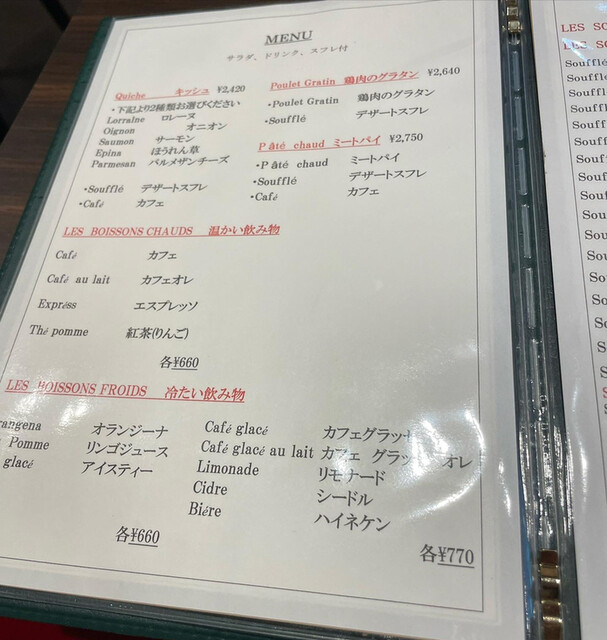 MENU
サラダ、ドリンク、スフレ付
Quiche キッシュ ¥2,420
・下記より2種類お選びください
Lorraine ロレーヌ
Oignon オニオン
Saumon サーモン
Epina ほうれん草
Parmesan パルメザンチーズ
・Soufflé デザートスフレ
・Café カフェ
Poulet Gratin 鶏肉のグラタン ¥2,640
・Poulet Gratin 鶏肉のグラタン
・Soufflé デザートスフレ
Pâté chaud ミートパイ ¥2,750
・Pâté chaud ミートパイ
・Soufflé デザートスフレ
・Café カフェ
LES BOISSONS CHAUDS 温かい飲み物
Café カフェ
Café au lait カフェオレ
Exprèss エスプレッソ
Thé pomme 紅茶(りんご)
各¥660
LES BOISSONS FROIDS 冷たい飲み物
rangena オランジーナ
Pomme リンゴジュース
glacé アイスティー
各¥660
Café glacé カフェグラッセ
Café glacé au lait カフェ グラッ オレ
Limonade リモナード
Cidre シードル
Biére ハイネケン
各¥770
LES SO
LES SO
Souffl
Souffl
Souffl
Souffl
Souff
Souff
Souf
Souf
Souf
Souf
Sou
Sou
Sou
Sou
So
So
S
S